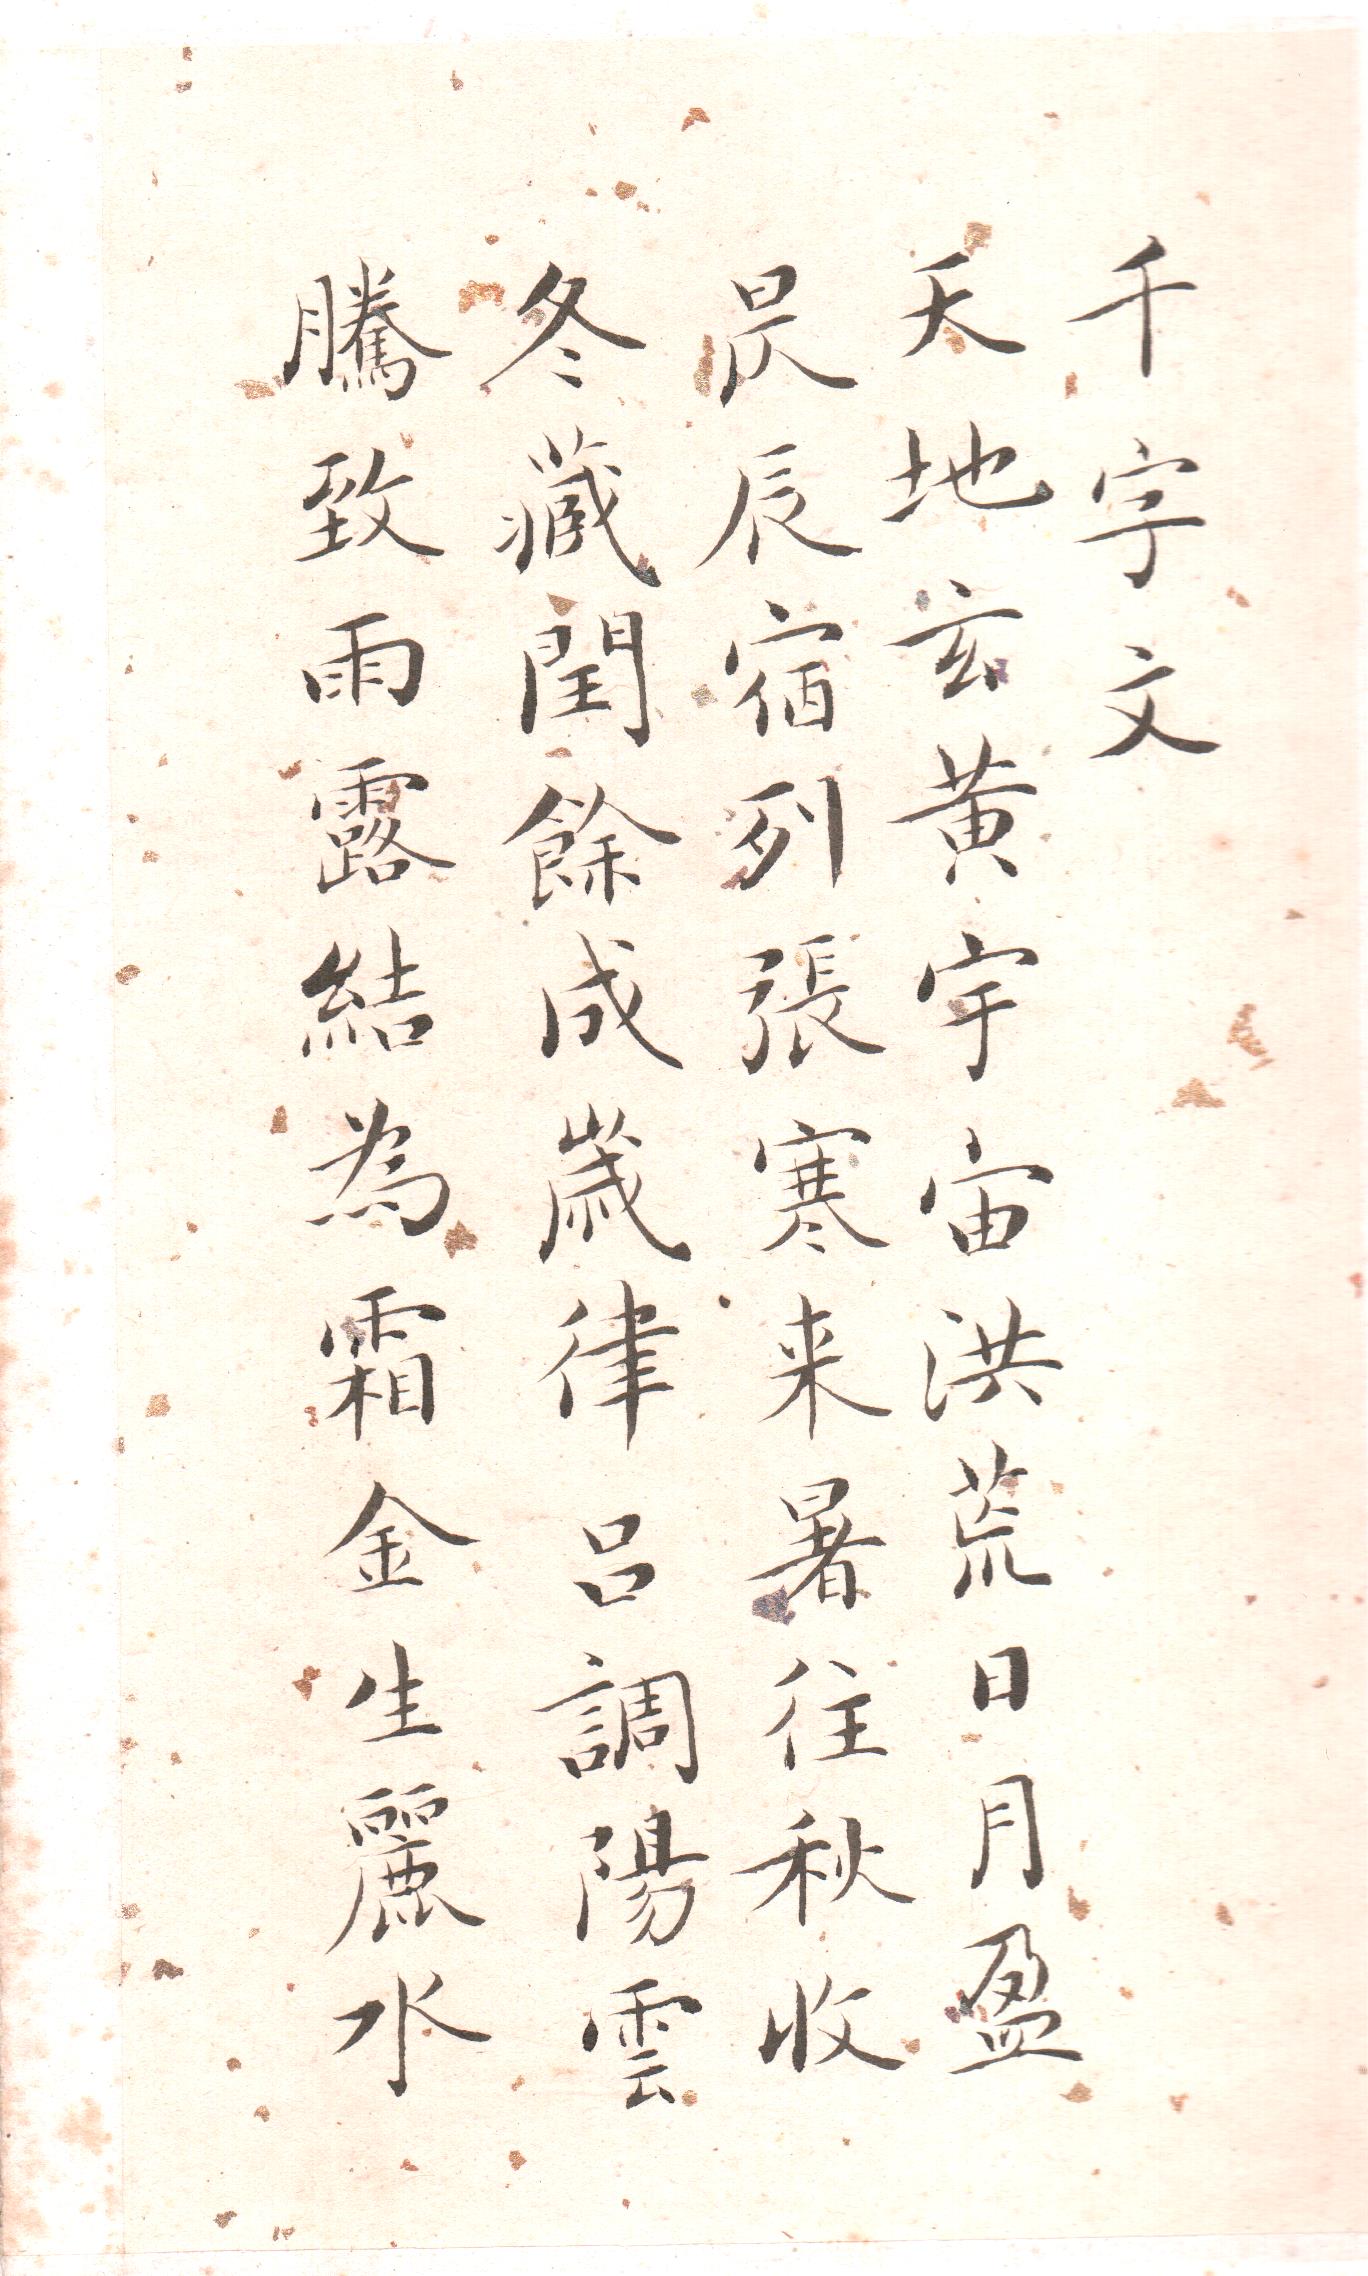 千字文
天地玄黄宇宙洪荒日月盈
昃辰宿列張寒来暑往秋収
冬藏閏餘成歲律呂調陽雲
騰致雨露結為霜金生麗水